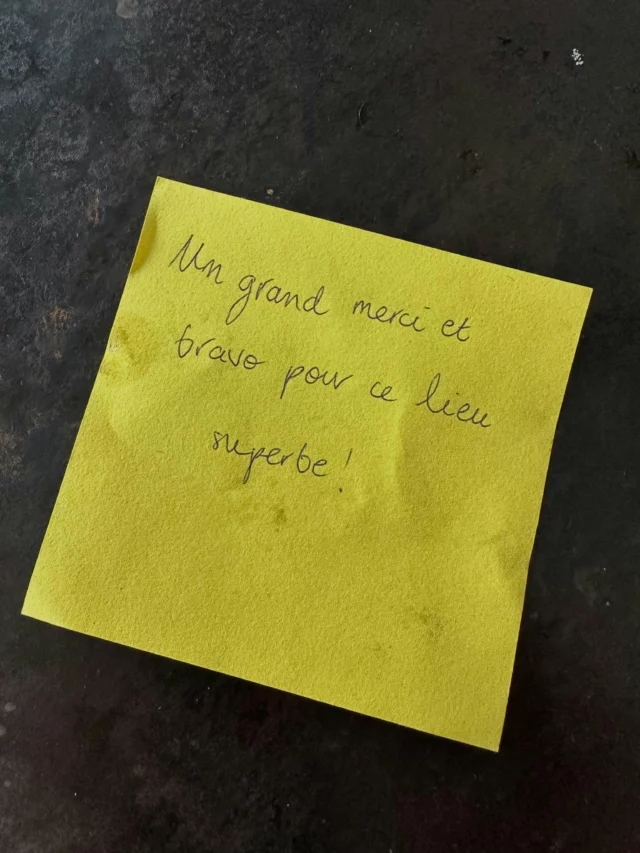 Un grand merci et
bravo pour ce lieu
superbe!